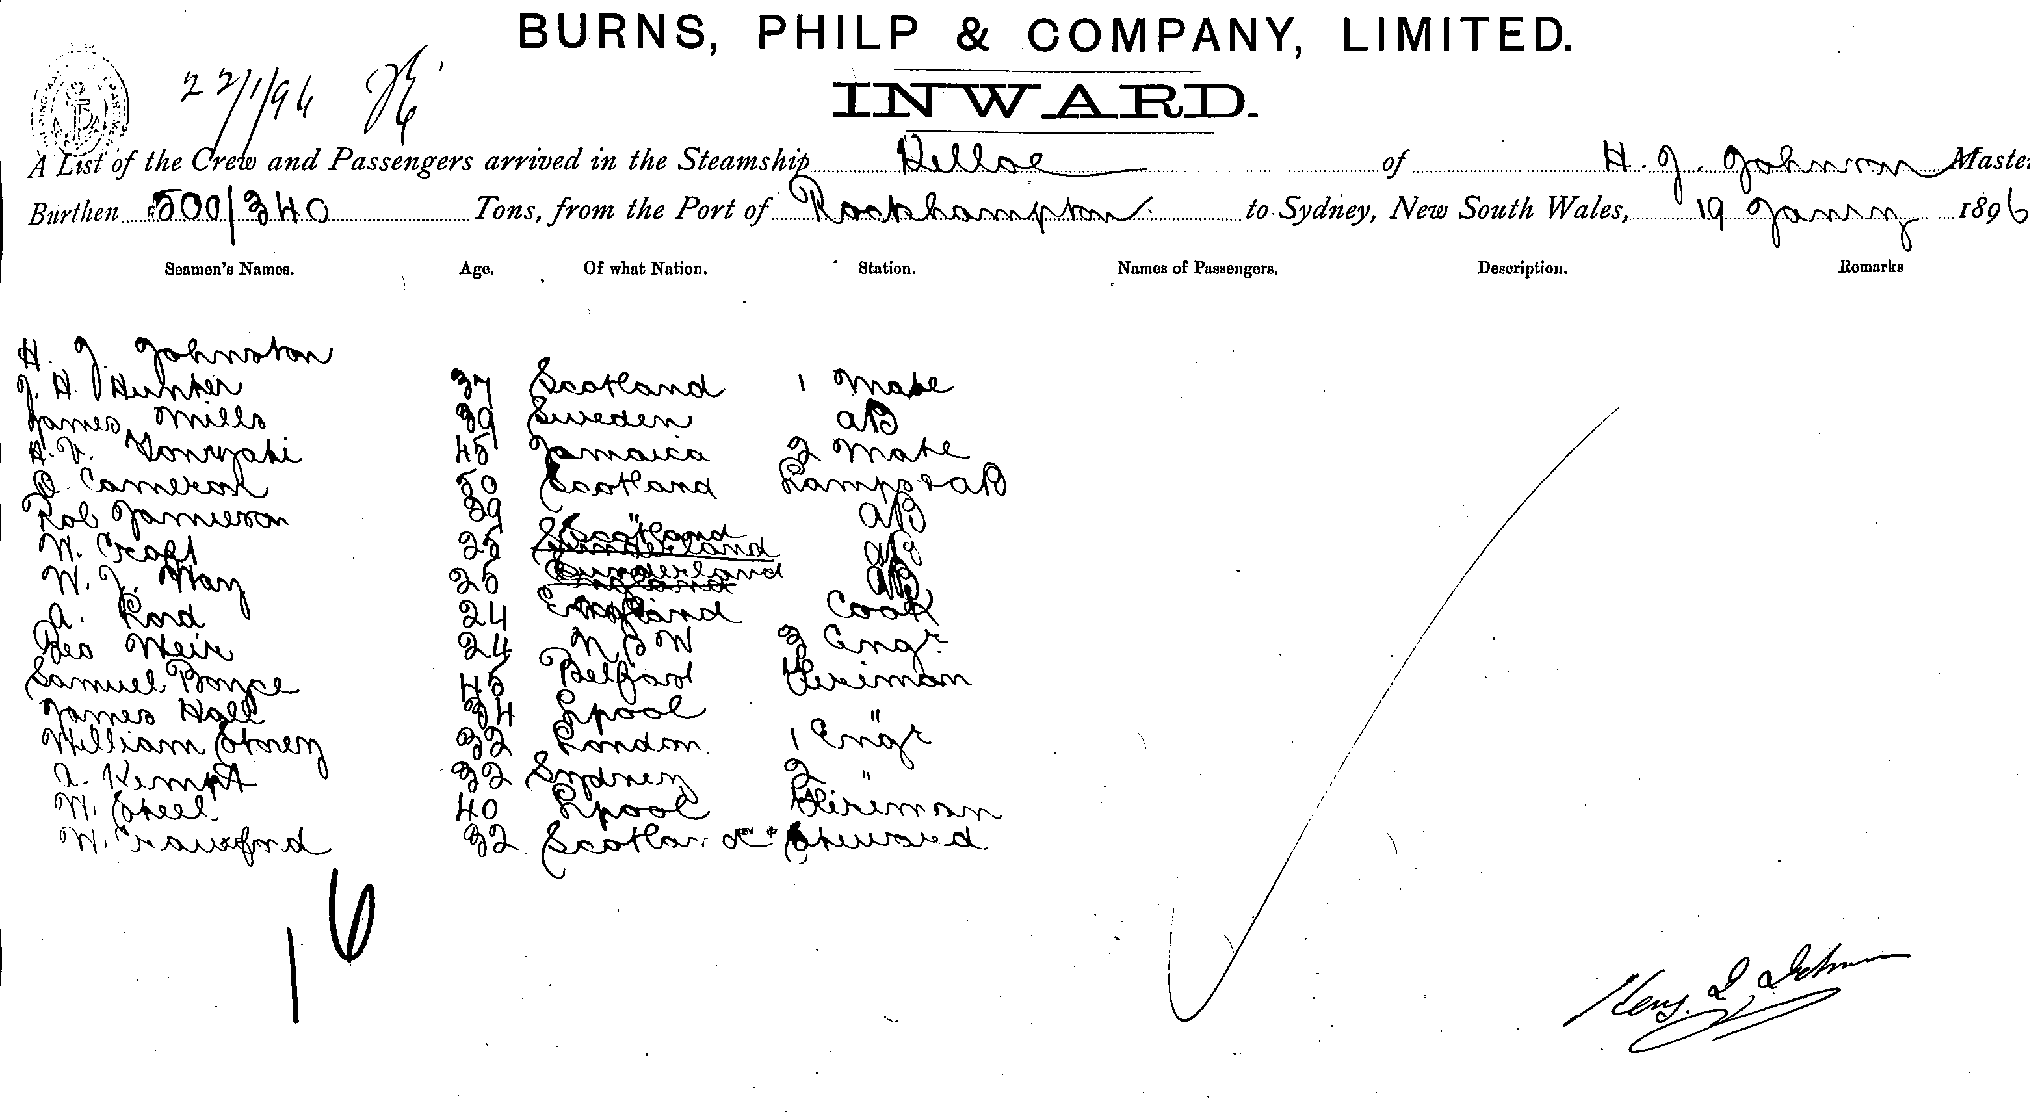 BURNS, PHILP & COMPANY, LIMITED.
22/1/96
INWARD.
A List of the Crew and Passengers arrived in the Steamship Kelloe of H. J. Johnson Master
Burthen 500/340 Tons, from the Port of Rockhampton to Sydney, New South Wales, 19 Janry 1896
Seamen's Names. Age. Of what Nation. Station. Names of Passengers. Description. Remarks
H. J Johnston
J. H. Hunter 37 Scotland 1 Mate
James Mills 39 Sweden AB
45 Jamaica 2 Mate
D. Cameron 50 Scotland Lamps & AB
Rob Jamieson 39 " AB
W. Craft 25 Scotland Sunderland AB
W. J. May 25 Sunderland England AB
A. Lord 24 England Cook
Geo Weir 24 N S W 3 Engr
Samuel Boyce 45 Belfast Fireman
James Hall 34 Lpool "
William Storey 32 London 1 Engr
A. Kempt 32 Sydney 2 "
W. Steel 40 Lpool Fireman
W. Crawford 32 Scotland Steward
16
Heny. J Johnson